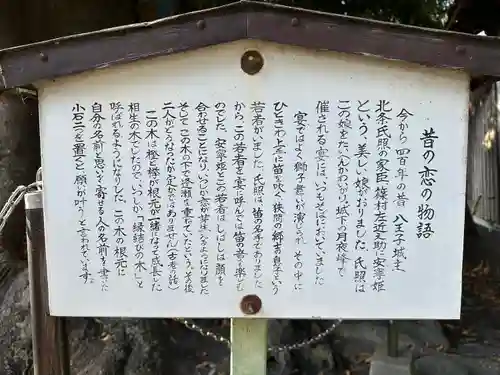 昔の恋の物語
今から四百年の昔 八王子城主、
北条氏照の家臣 篠村左近之助に安寧姫
という、美しい娘がおりました。氏照は
この娘をたいへんかわいがり、城下の月夜峰で
催される宴には、いつもそばにおいていました
宴ではよく獅子舞いが演じられ、その中に
ひときわ上手に笛を吹く狭間の郷士の息子という
若者がいました。氏照は、笛の名手でありました
から、この若者を宴に呼んでは笛の音を楽しむ
のでした。安寧姫とこの若者はしばしば顔を
合わせることになり、いつしか恋が芽生えるようになりました
そして、この木の下で逢瀬を重ねていたという。
二人がどうなったかは定かではありません(古老の話)
この木は樫と欅が根元が一緒になって成長した
相生の木でしたので、いつしか「縁結びの木」と
呼ばれるようになりました。この木の根元に
自分の名前と思いを寄せる人の名前を書いた
小石二つを置くと、願いが叶うと言われています。